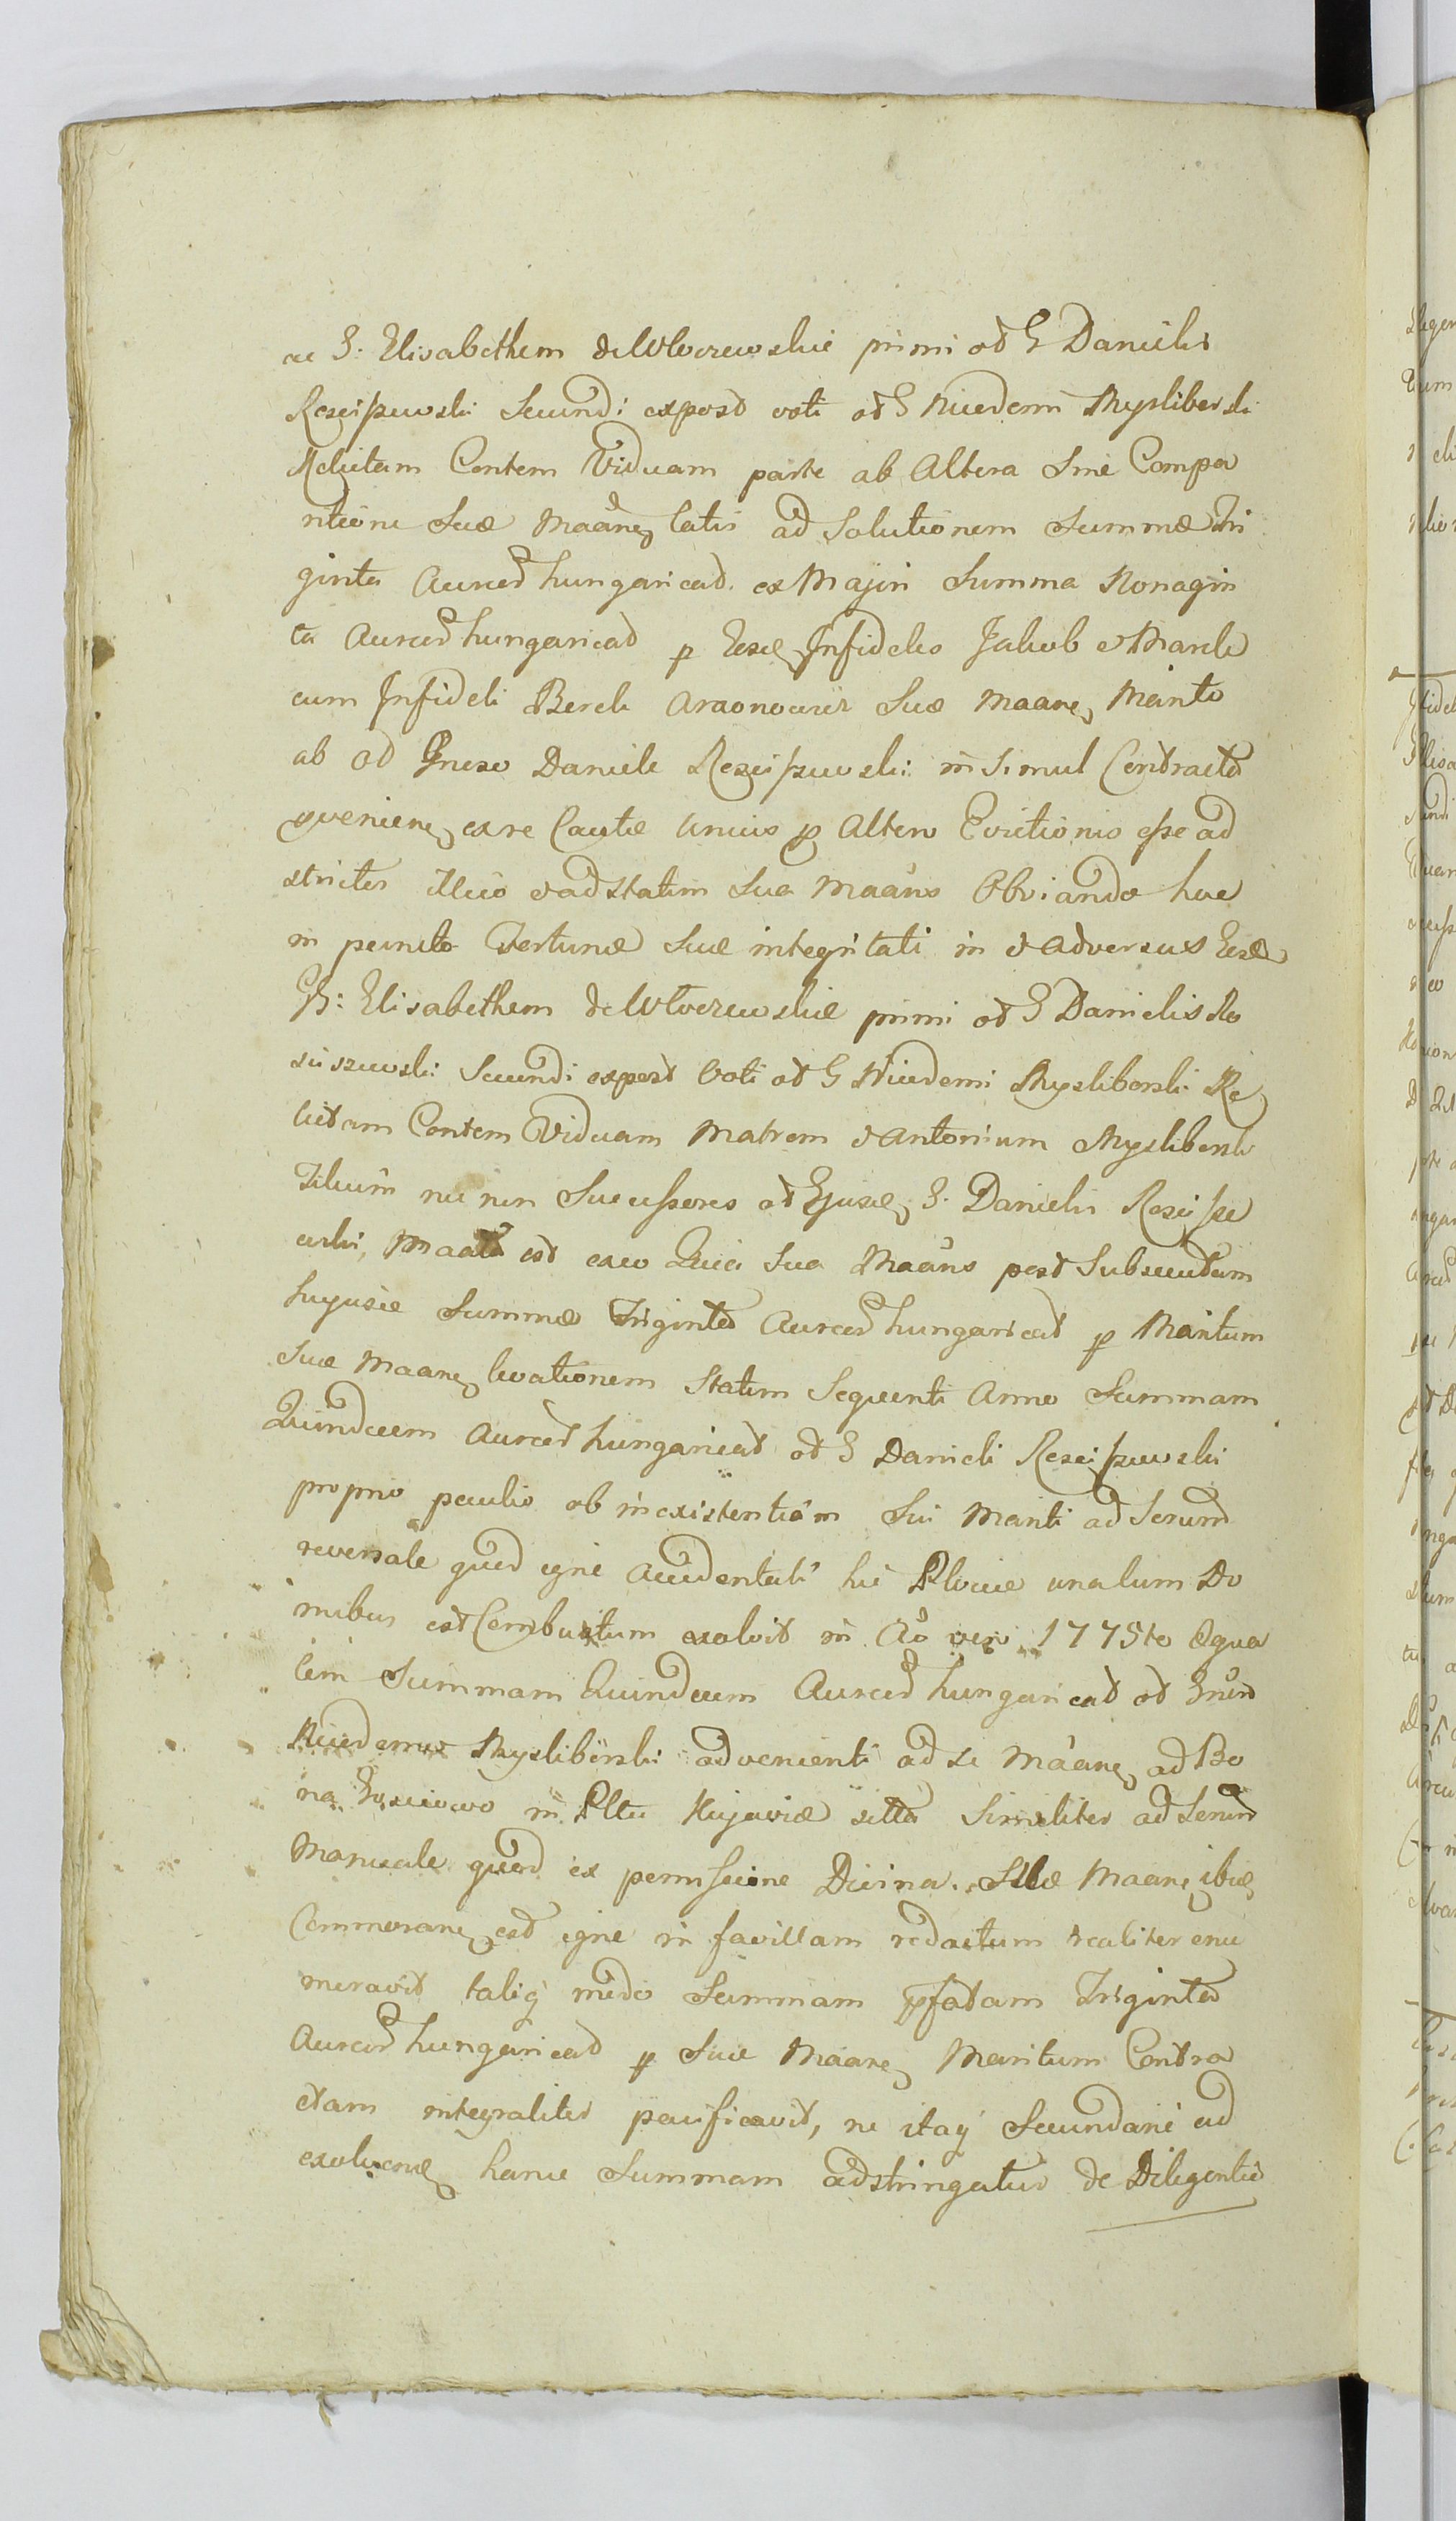 ac G: Elisabethem de Wtoczewskie primi od G Danielis
Rosciszewski Secundi expost voti od G Nicodemi Mysliborski
Relictam Contem Viduam parte ab Altera Sine Compa
ritione Suae Maane latis ad Solutionem Summae Tri
ginta Aureor hungaricad. ex Majori Summa Nonagin
ta Aureor hungaricad p Eosd Infideles Jakob et Marek
cum Infideli Berek Aaronowicz Suae Maane Marito
ab od Gneroso Daniele Rosciszewski in Simul Contracta
proveniene ex re Cautae unius p Altero Evictionis esse ad
strictis illico et ad statim Sua Maans Obviando huic
in puncto Fortunae Suae integritati in et adversus Eosd
G: Elisabethem de Wtoczewskie primi od G Danielis Ro
sciszewski Secundi expost Voti od G Nicodemi Mysliborski Re
lictam Contem Viduam Matrem et Antonium Mysliborski
Filium nec non Successores od Ejusd G. Danielis Roscisze
wski, Maata est ex eo Quia Sua Maans post Subsecutam
hujusce Summae Triginta Aureor hungaricad p Maritum
Suae Maane levationem Statim Sequenti Anno Summam
Quindecem Aureor hungaricad od G Danieli Rosciszewski
proprio peculio ob inexistentiam Sui Mariti ad Serum
reversale quod igne accidentali hic Plociae una cum Do
mibus est Combustum exolvit in Ao vero 1775to aequa
lem Summam Quindecem Aureor hungaricad od Gnero
Nicodemo Mysliborski advenienti ad Se Maane ad Bo
na in Pltu Kujaviae sitta Similiter ad Serum
Manuale quod ex permissione Divina Suae Maane ibid
Commorane est igne in favillam redactum realiter enu
meravit taliq modo Summam pfatam Triginta
Aureor hungaricad p Suae Maane Maritum Contra
ctam integraliter pacificavit, ne itaq Secundarie ad
exolvend hanc Summam adstringatur de Diligentia